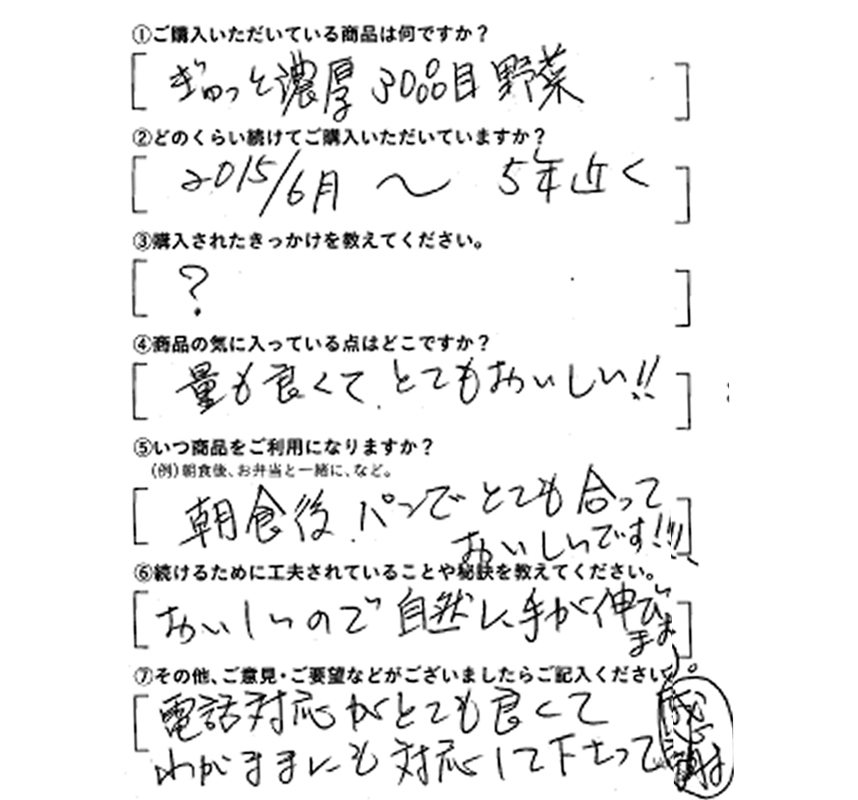 ①ご購入いただいている商品は何ですか？
ぎゅっと濃厚30品目野菜
②どのくらい続けてご購入いただいていますか？
2015/6月 〜 5年近く
③購入されたきっかけを教えてください。
？
④商品の気に入っている点はどこですか？
量も良くて、とてもおいしい!!
⑤いつ商品をご利用になりますか？
(例)朝食後、お弁当と一緒に、など。
朝食後、パンでとても合って
おいしいです!!!
⑥続けるために工夫されていることや秘訣を教えてください。
おいしいので自然に手が伸び
ます。
⑦その他、ご意見・ご要望などがございましたらご記入ください
電話対応がとても良くて
わがままにも対応して下さって感謝